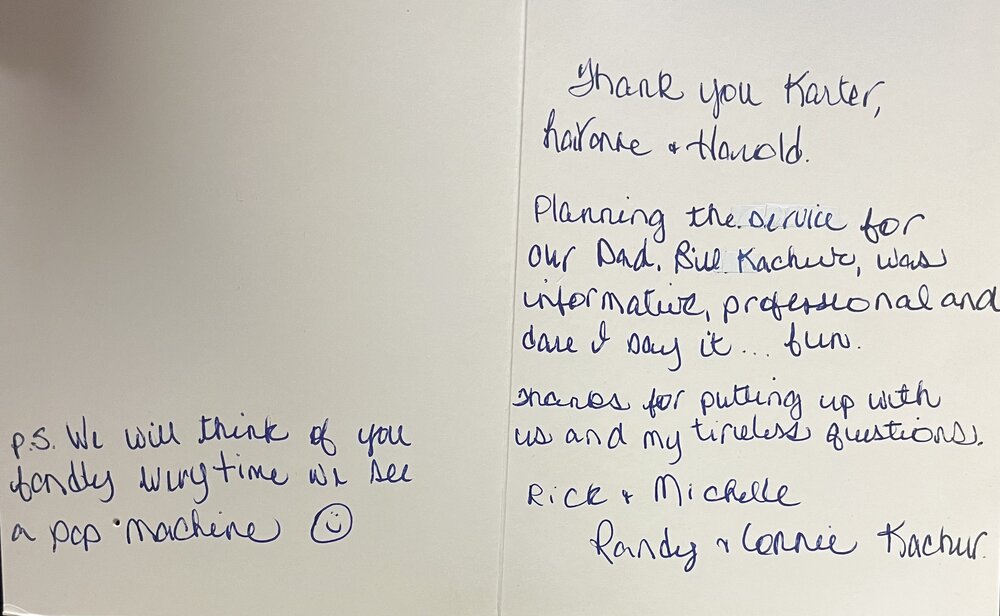 Thank you Karter,
LaVonne & Harold.
Planning the service for
our Dad, Bill Kachur, was
informative, professional and
dare I say it... fun.
Thanks for putting up with
us and my tireless questions.
Rick & Michelle
Randy & Connie Kachur.
p.s. We will think of you
fondly everytime we see
a pop machine ☺